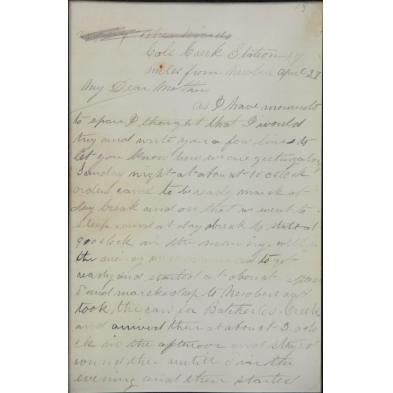 13
Cole Creek Station 9
miles from Newbern April 28
My Dear Mother
as I have moments
to spare I thought that I would
try and write you a few lines to
let you know how we are getting along
Sunday night at about 10 oclock
orders came to be ready march at
day break and on that we went to
sleep and at day break to start at
9 oclock in the morning
the
ready and started at about
and marched up to Newbern and
took the cars for Batchelers Creek
and arrived there at about 3 oclo
ck in the afternoon and stayed
round there untill 5 in the
evening and then started